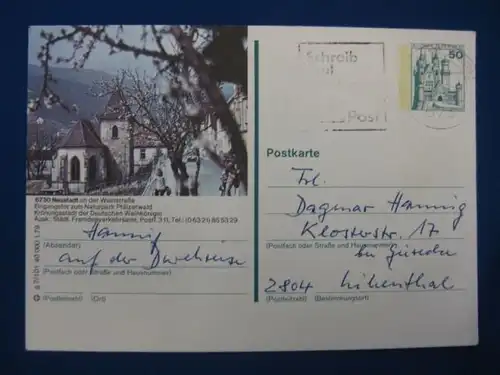 Schreib
mal
Post!
50
6730 Neustadt an der Weinstraße
Eingangstor zum Naturpark Pfälzerwald
Krönungsstadt der Deutschen Weinkönigin
Ausk.: Städt. Fremdenverkehrsamt, Postf. 311, Tel.: (06321) 855329
Hannig
(Absender)
auf der Durchreise
(Postfach oder Straße und Hausnummer)
(Postleitzahl) (Ort)
Postkarte
Frl.
Dagmar Hannig
Klosterstr. 17
(Postfach oder Straße und Hausnummer)
bei
2804 Lilienthal
(Postleitzahl) (Bestimmungsort)